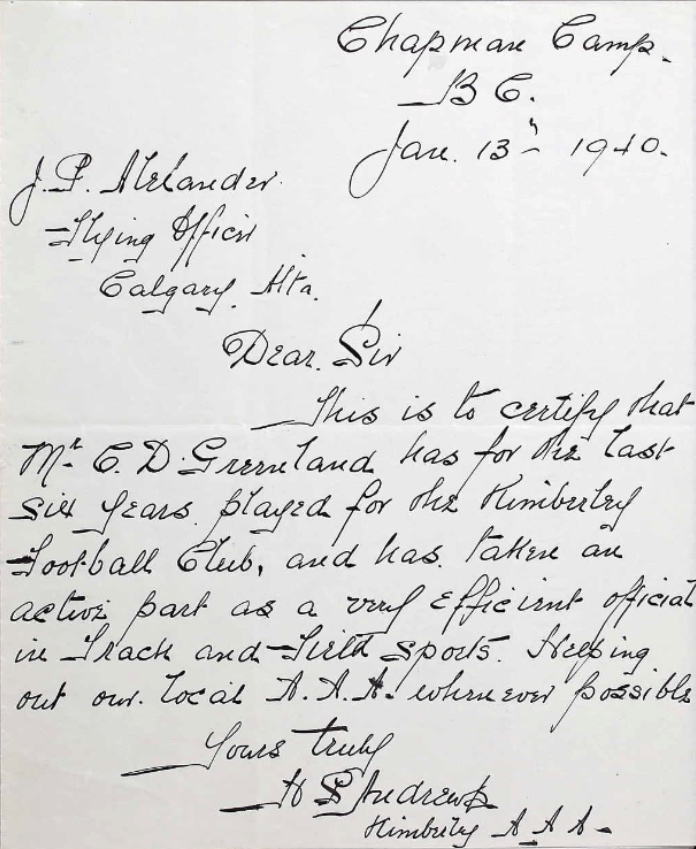 Chapman Camp.
B C.
Jan. 13th 1940.
J. P. Alexander.
Flying Officer
Calgary. Alta.
Dear. Sir
This is to certify that
Mr. C. D. Greenland has for the last
six years. played for the Kimberley
Football Club, and has. taken an
active part as a very efficient official
in Track and Field Sports. Helping
out our. local A. A. A. whenever possible
Yours truly
H S Andrews
Kimberley A. A A.